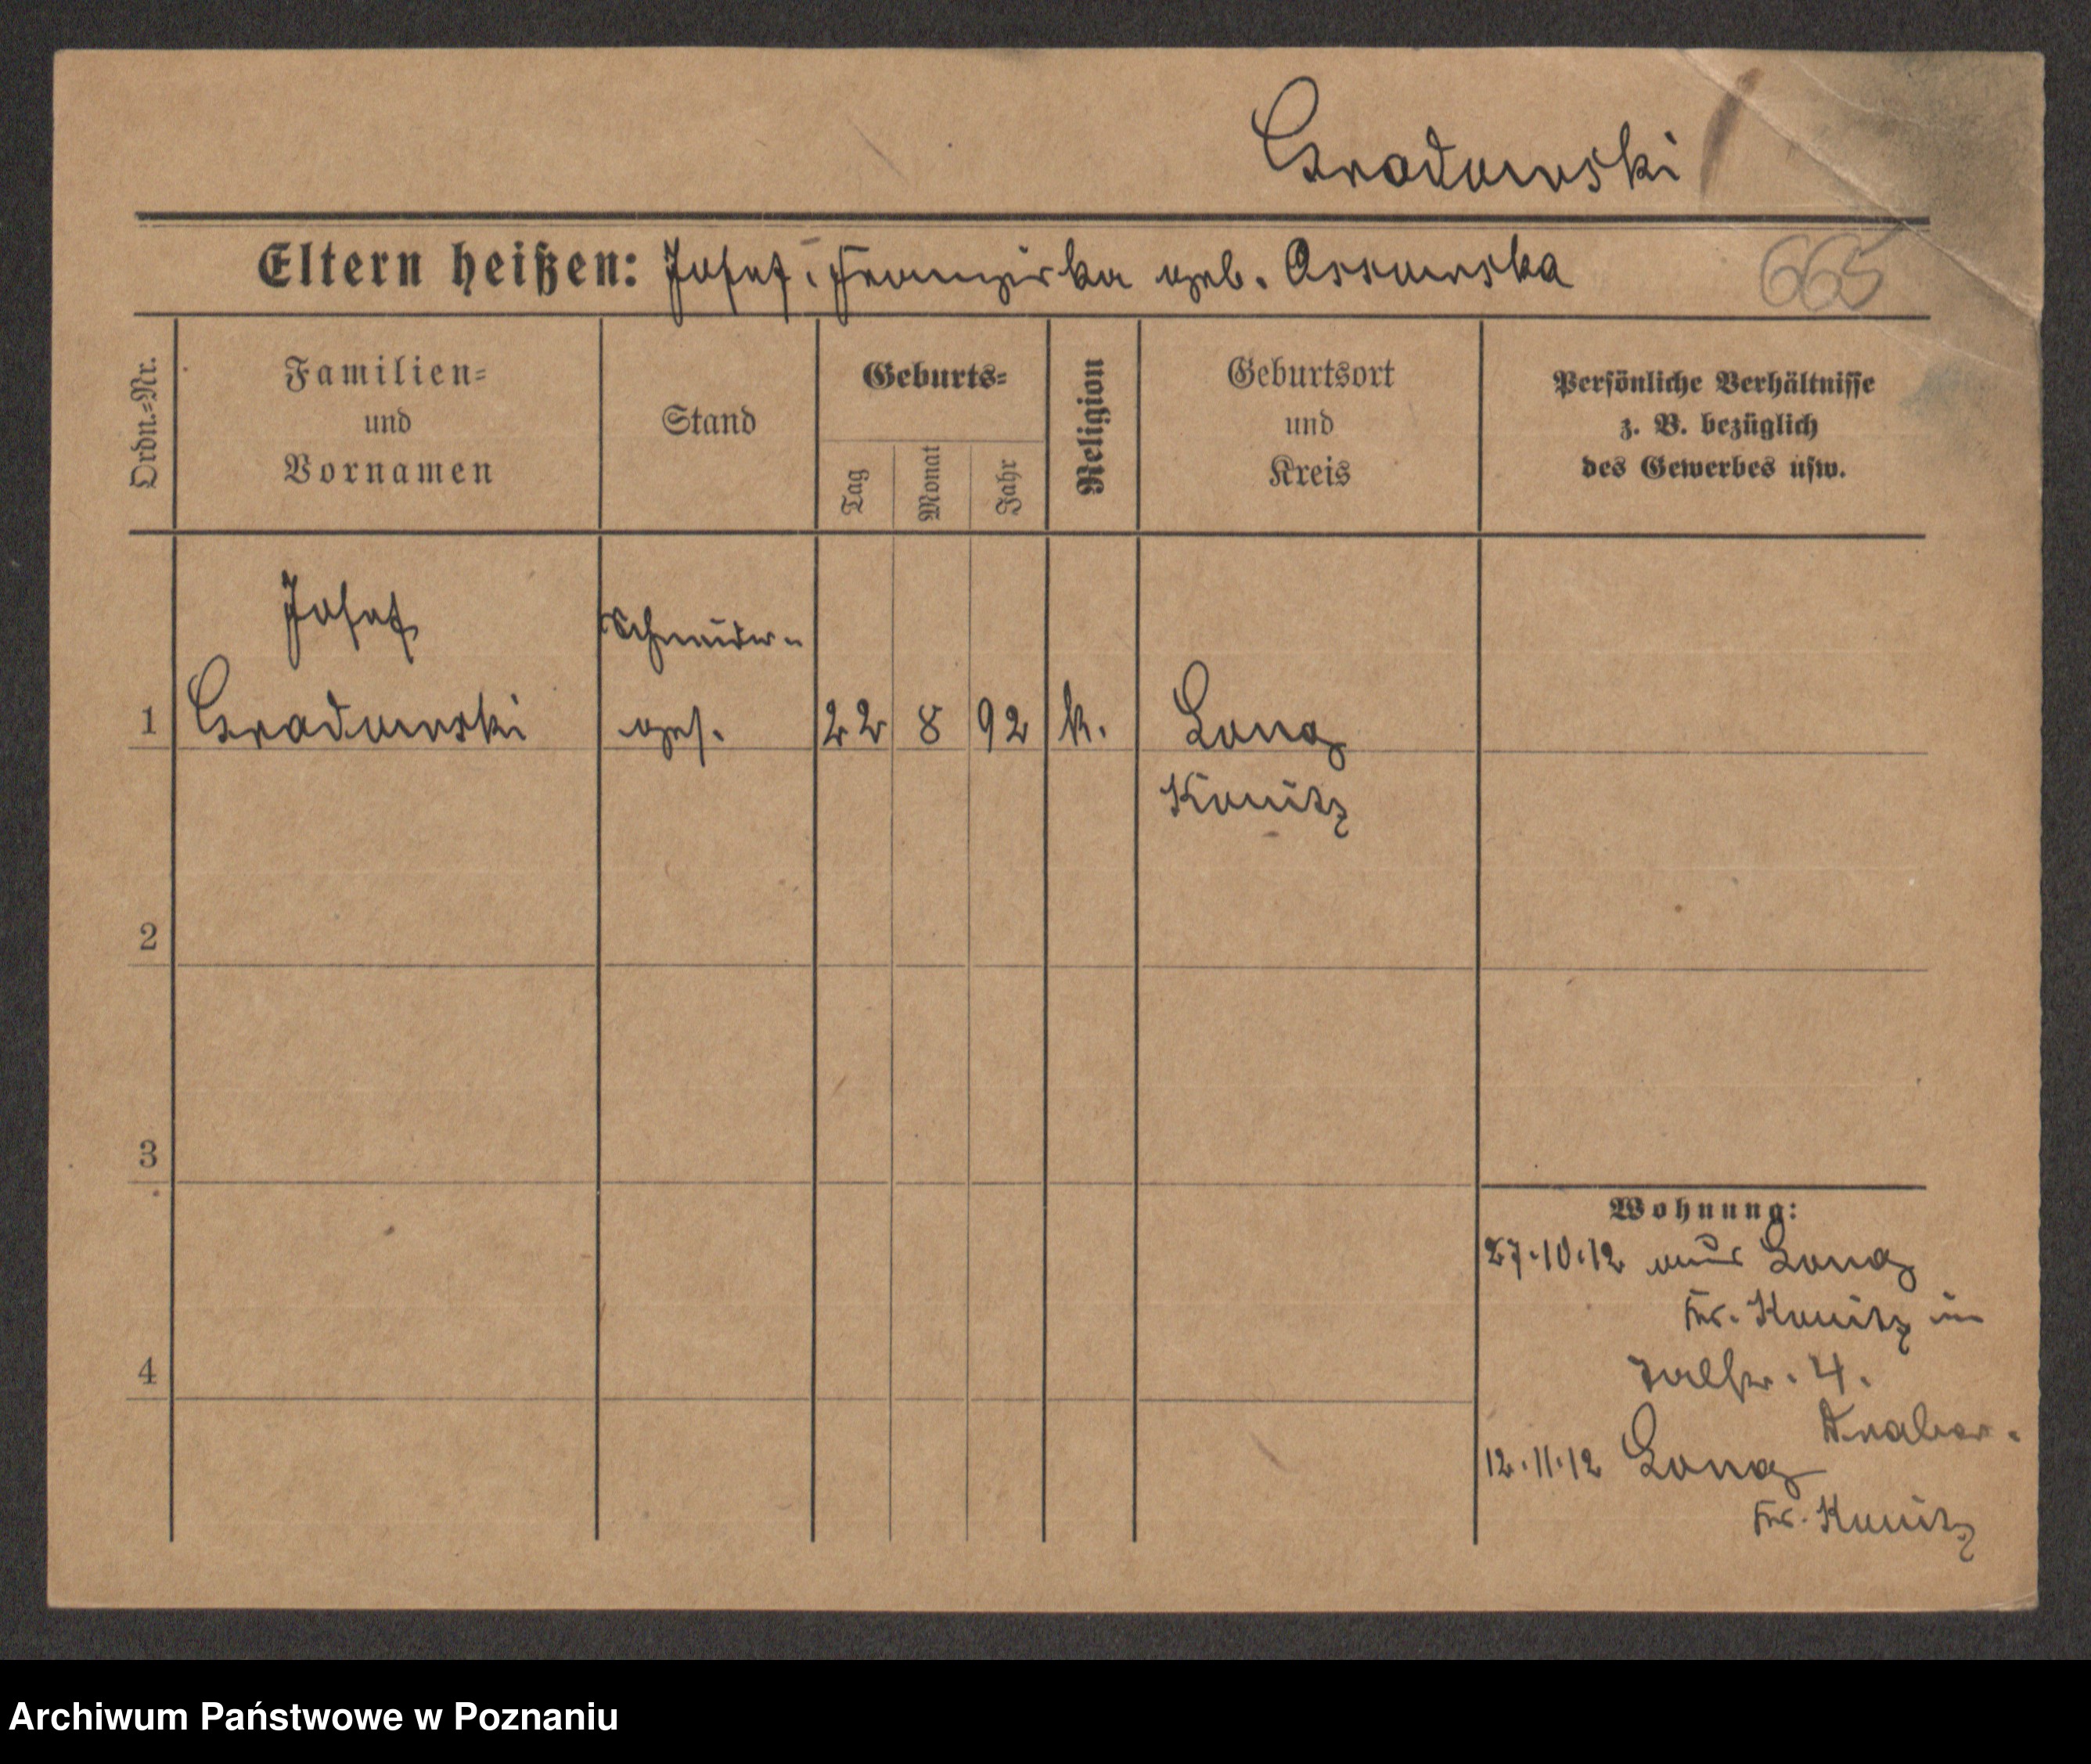 Gradowski
Eltern heißen: Josef, Franziska geb. Ossowska
665
Ordn.=Nr.
Familien=
und
Vornamen
Stand
Geburts=
Tag
Monat
Jahr
Religion
Geburtsort
und
Kreis
Persönliche Verhältnisse
z. B. bezüglich
des Gewerbes usw.
Josef
Schneider=
1 Gradowski ges. 22 8 92 k. Long
Konitz
2
3
Wohnung:
27.10.12 aus Long
Kr. Konitz in
4
4.
12.11.12 Long
Kr. Konitz
Archiwum Państwowe w Poznaniu